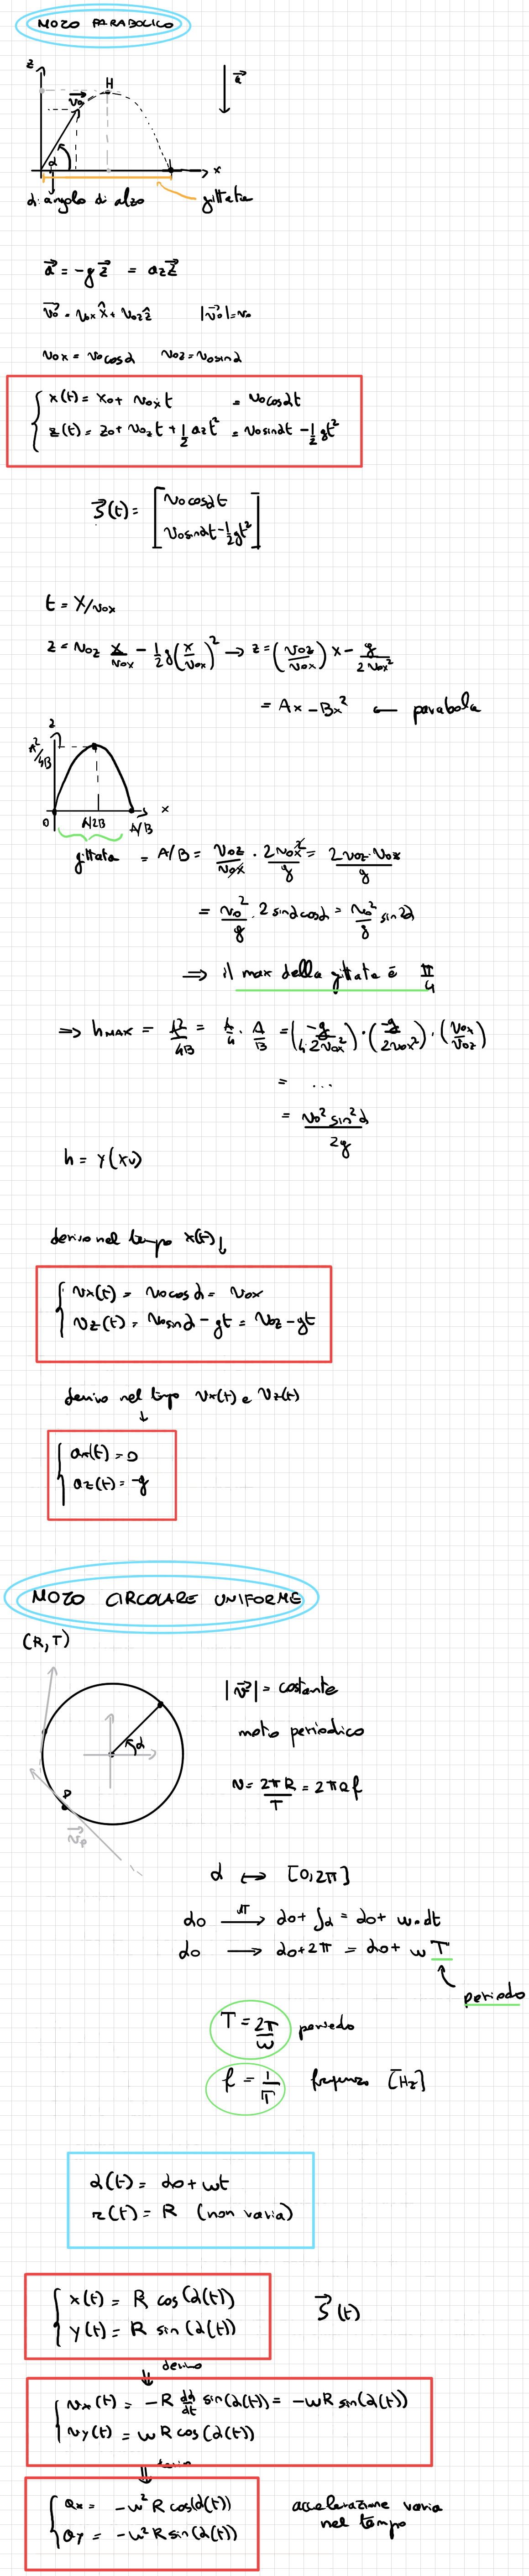 MOTO PARABOLICO
z
H
v⃗0
a⃗
α
x
α: angolo di alzo
gittata
a⃗ = -g z⃗ = az z⃗
v⃗0 = v0x x̂ + v0z ẑ |v⃗0| = v0
v0x = v0 cosα v0z = v0 sinα
x(t) = x0 + v0x t = v0 cosα t
z(t) = z0 + v0z t + 1/2 az t² = v0 sinα t - 1/2 gt²
s⃗(t) = [v0 cosα t
v0 sinα t - 1/2 gt²]
t = x/v0x
z = v0z x/v0x - 1/2 g (x/v0x)² → z = (v0z/v0x) x - g/2v0x²
= Ax - Bx² ← parabola
z
A²/4B
0 A/2B A/B x
gittata = A/B = v0z/v0x · 2v0x²/g = 2v0z·v0x/g
= v0²/g · 2 sinα cosα = v0²/g sin2α
⇒ il max della gittata è π/4
⇒ hMAX = A²/4B = A/4 · A/B = (-g/4·2v0x²) · (-g/2v0x²) · (v0x/v0z)
= ...
= v0² sin²α/2g
h = y(xv)
derivo nel tempo x(t) ↓
vx(t) = v0 cosα = v0x
vz(t) = v0 sinα - gt = v0z - gt
derivo nel tempo vx(t) e vz(t)
↓
ax(t) = 0
az(t) = -g
MOTO CIRCOLARE UNIFORME
(R, T)
|v⃗| = costante
α
moto periodico
P
v = 2πR/T = 2πRf
v⃗P
α ↔ [0, 2π]
α0 → dT α0 + ∫α = α0 + ω·dt
α0 → α0 + 2π = α0 + ω T
periodo
T = 2π/ω periodo
f = 1/T frequenza [Hz]
α(t) = α0 + ωt
r(t) = R (non varia)
x(t) = R cos(α(t))
y(t) = R sin(α(t))
s⃗(t)
⇓ derivo
vx(t) = -R dα/dt sin(α(t)) = -ωR sin(α(t))
vy(t) = ωR cos(α(t))
⇓ derivo
ax = -ω² R cos(α(t))
ay = -ω² R sin(α(t))
accelerazione varia
nel tempo